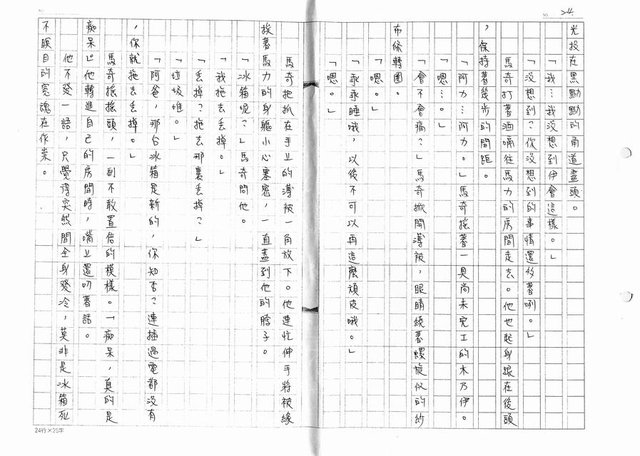 24.
光投在黑黝黝的甬道盡頭。
「我…我沒想到伊會這樣。」
「沒想到?你沒想到的事情還多著咧。」
馬奇打著油嗝往馬力的房間走去。他也起身跟在後頭
,保持著幾步的間距。
「阿力…阿力。」馬奇搖著一具尚未完工的木乃伊。
「會不會痛?」馬奇掀開薄被,眼睛繞著螺旋似的紗
布條轉圈。
「嗯。」
「乖乖睡哦,以後不可以再這麼頑皮哦。」
「嗯。」
馬奇把抓在手上的薄被一角放下。他連忙伸手將被緣
挨著馬力的身軀小心塞密,一直蓋到他的脖子。
「冰箱呢?」馬奇問他。
「我拖去丟掉。」
「丟掉?拖去那裏丟掉?」
「垃圾堆。」
「阿爸,那台冰箱是新的,你知否?連插過電都沒有
,你就拖去丟掉。」
馬奇搖搖頭,一副不敢置信的模樣。「痴呆,真的是
痴呆」他轉進自己的房間時,嘴上還叨著話。
他不發一語,只覺得突然間全身發冷,莫非是冰箱死
不瞑目的冤魂在作祟。
24行×25字